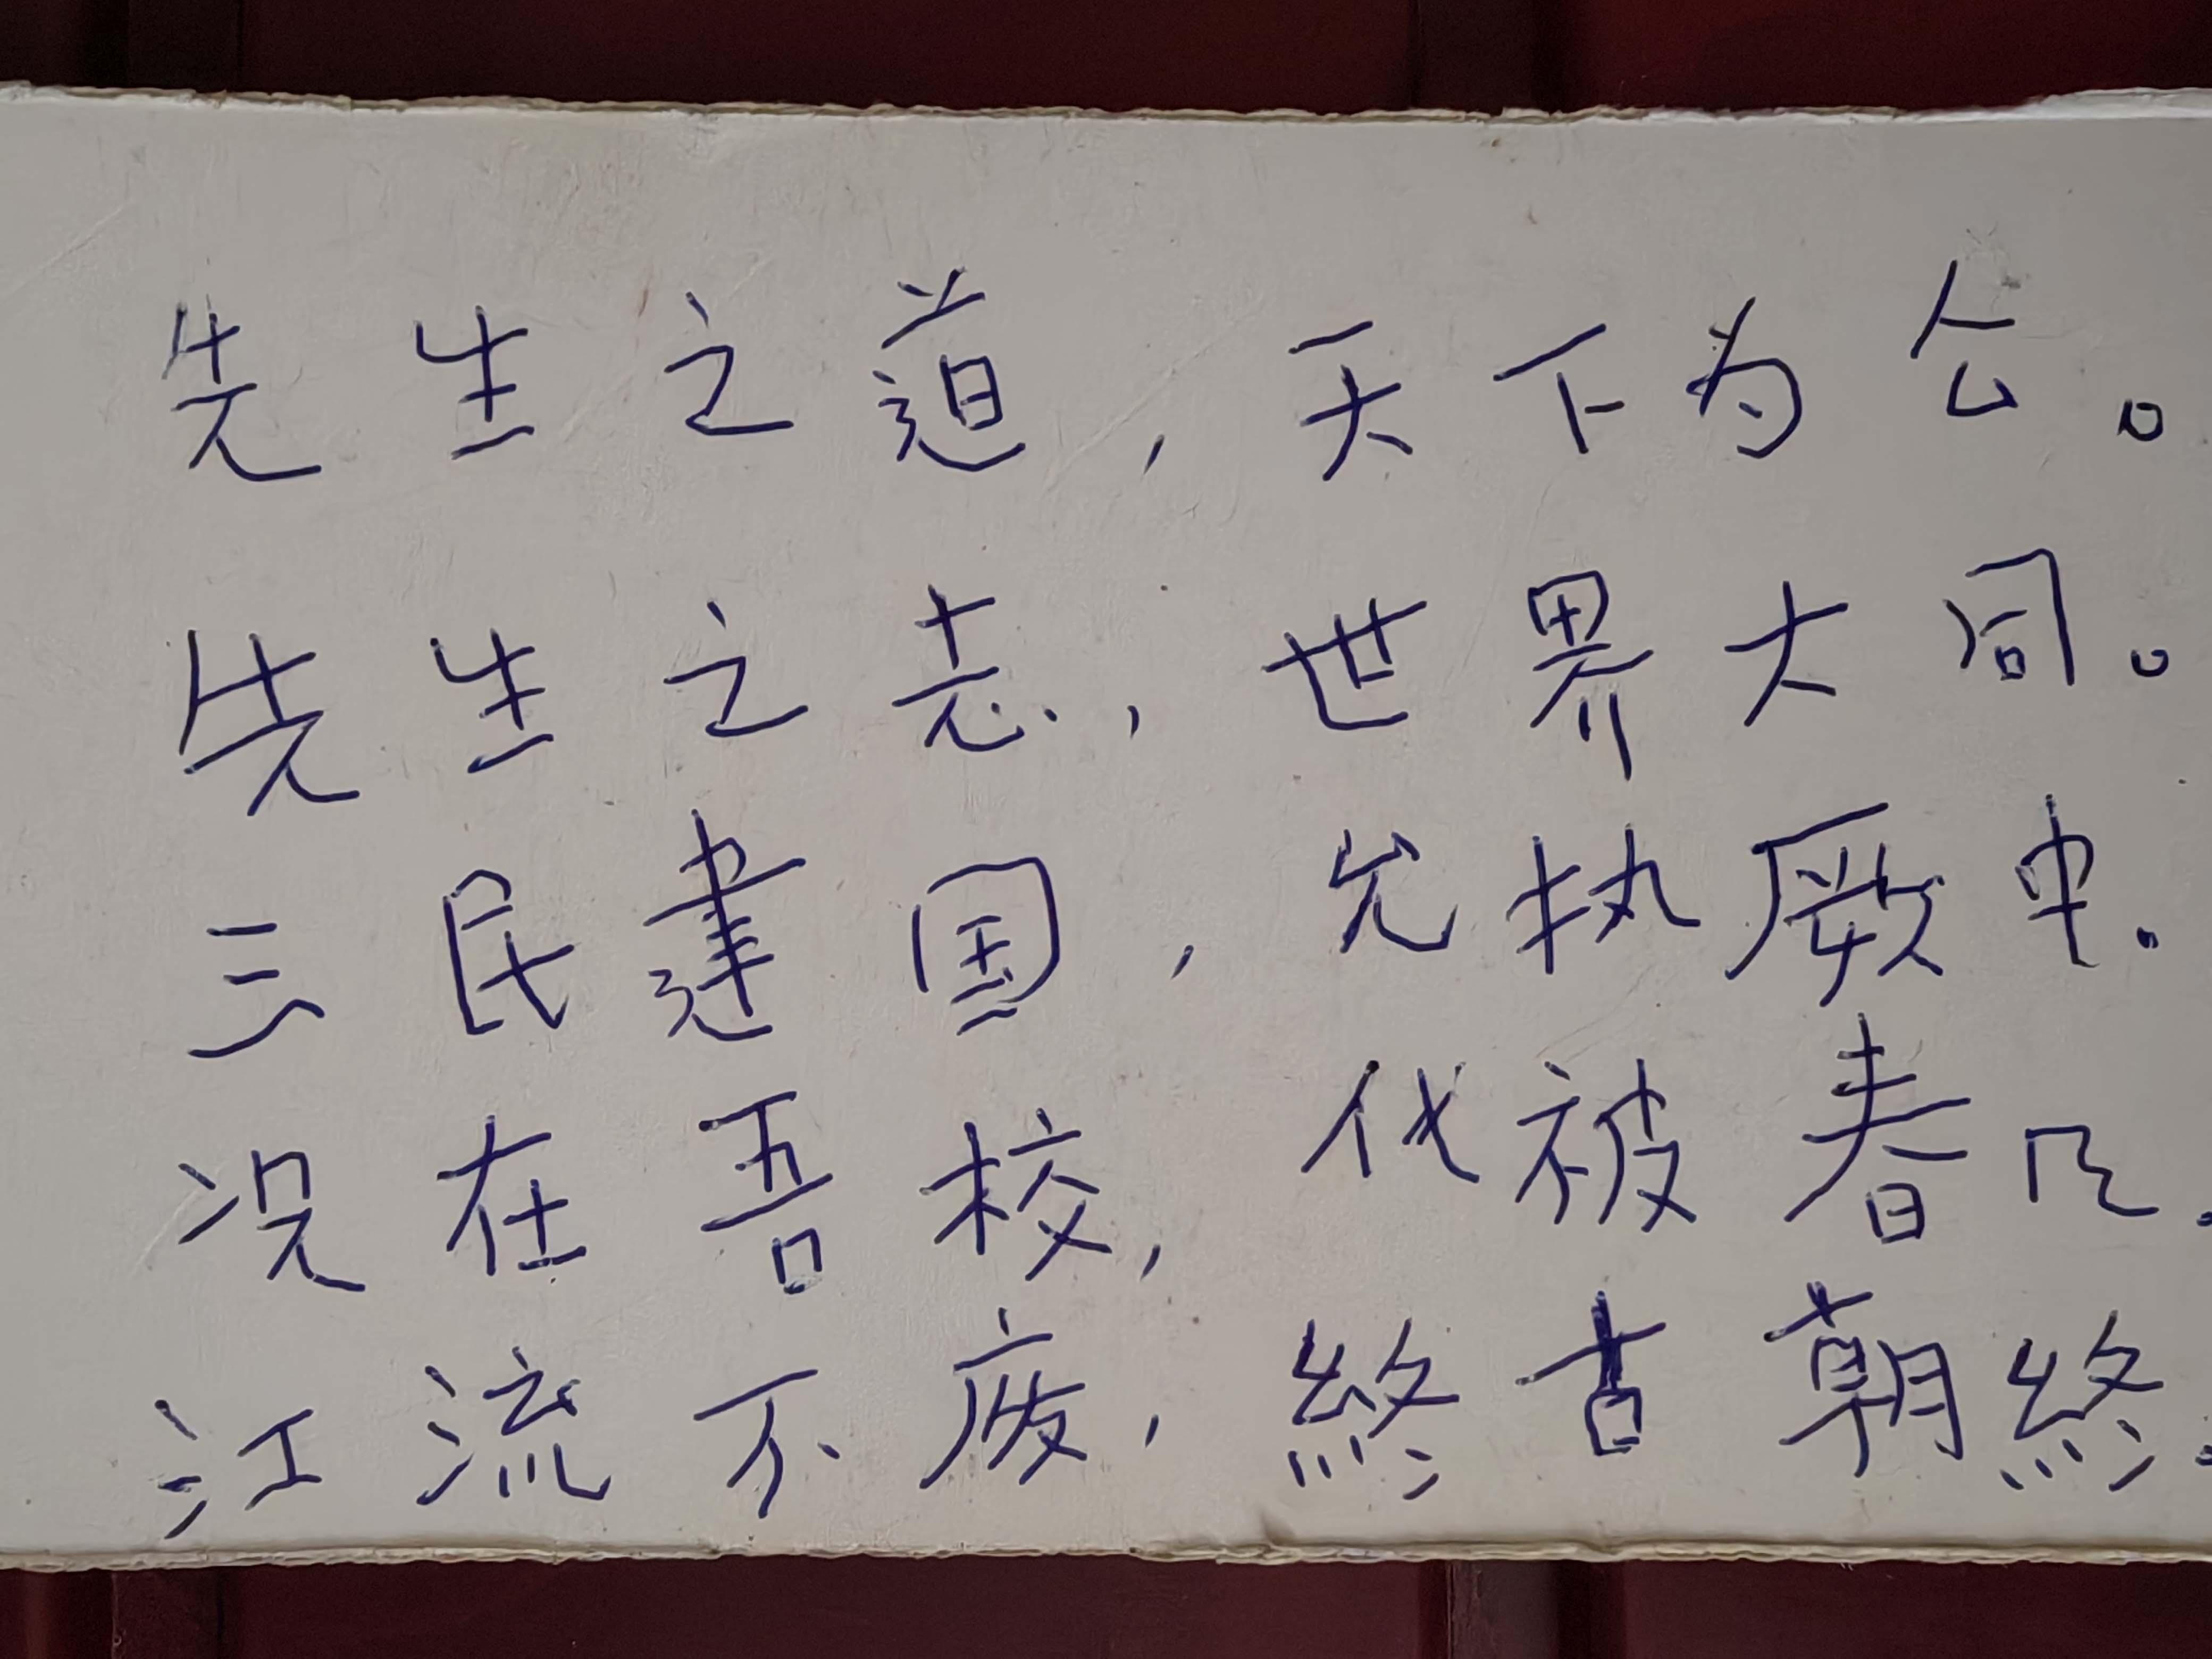 先生之道，天下为公。
先生之志，世界大同。
三民建国，允执厥中。
况在吾校，化被春风。
江流不废，终古朝终。